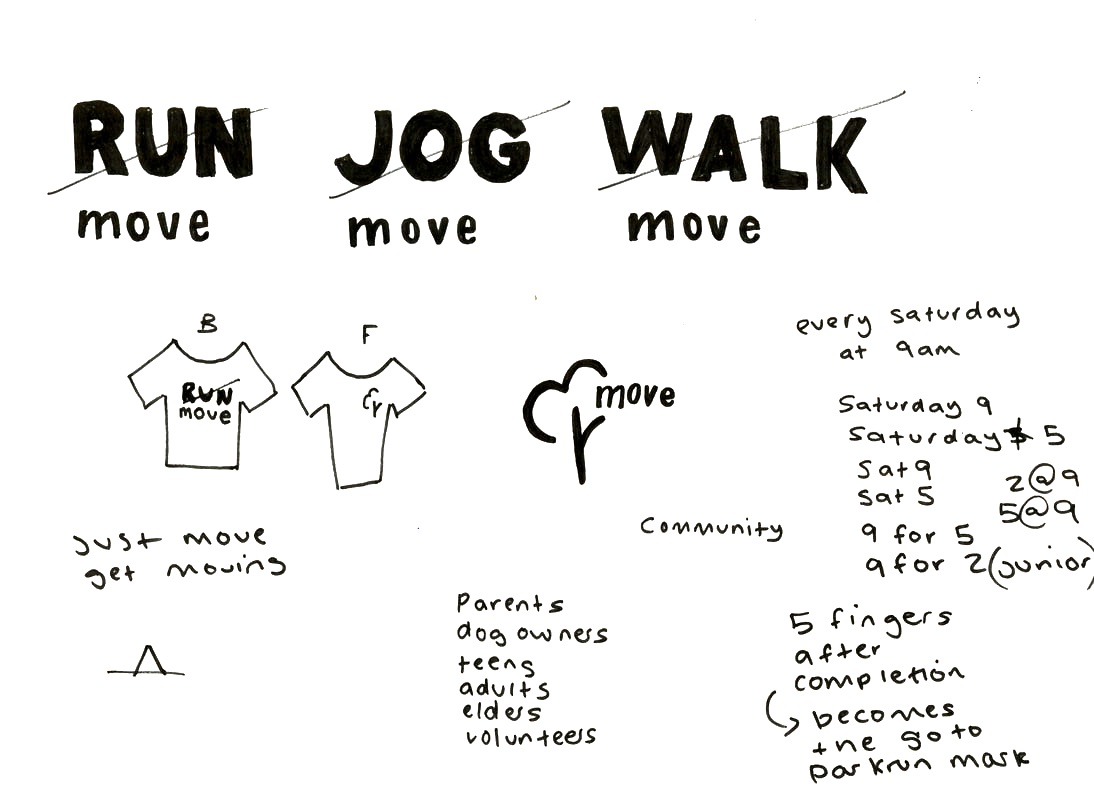 RUN JOG WALK
move move move
B F
RUN
move
move
every saturday
at 9am
Saturday 9
Saturday 5
Sat 9
Sat 5
2@9
5@9
9 for 5
9 for 2 (junior)
Community
just move
get moving
Parents
dog owners
teens
adults
elders
volunteers
5 fingers
after
completion
becomes
the go to
parkrun mark